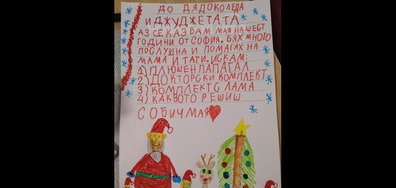 ДО ДЯДО КОЛЕДА
И ДЖУДЖЕТАТА
АЗ СЕ КАЗВАМ МАЯ НА ШЕСТ
ГОДИНИ ОТ СОФИЯ. БЯХ МНОГО
ПОСЛУШНА И ПОМАГАХ НА
МАМА И ТАТИ. ИСКАМ:
1) ПЛЮШЕН ПАПАГАЛ
2) ДОКТОРСКИ КОМПЛЕКТ
3) КОМПЛЕКТ С ЛАМА
4) КАКВОТО РЕШИШ
С ОБИЧ МАЯ